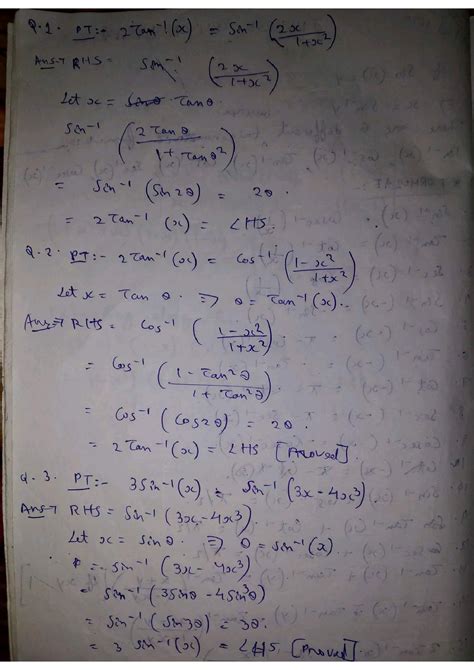 Q.1. PT:- 2Tan⁻¹(x) = Sin⁻¹(2x/1+x²)
Ans→ RHS = Sin⁻¹(2x/1+x²)
Let x = Tanθ
Sin⁻¹(2Tanθ/1+Tanθ²)
= Sin⁻¹(Sin2θ) = 2θ.
= 2Tan⁻¹(x) = LHS.
Q.2. PT:- 2Tan⁻¹(x) = Cos⁻¹(1-x²/1+x²)
Let x = Tanθ. => θ = Tan⁻¹(x).
Ans→ RHS = Cos⁻¹(1-x²/1+x²)
= Cos⁻¹(1-Tan²θ/1+Tan²θ)
= Cos⁻¹(Cos2θ) = 2θ.
= 2Tan⁻¹(x) = LHS [Proved].
Q.3. PT:- 3Sin⁻¹(x) = Sin⁻¹(3x-4x³)
Ans→ RHS = Sin⁻¹(3x-4x³)
Let x = Sinθ. => θ = Sin⁻¹(x)
= Sin⁻¹(3x-4x³)
= Sin⁻¹(3Sinθ-4Sin³θ)
= Sin⁻¹(Sin3θ) = 3θ.
= 3Sin⁻¹(x) = LHS. [Proved].